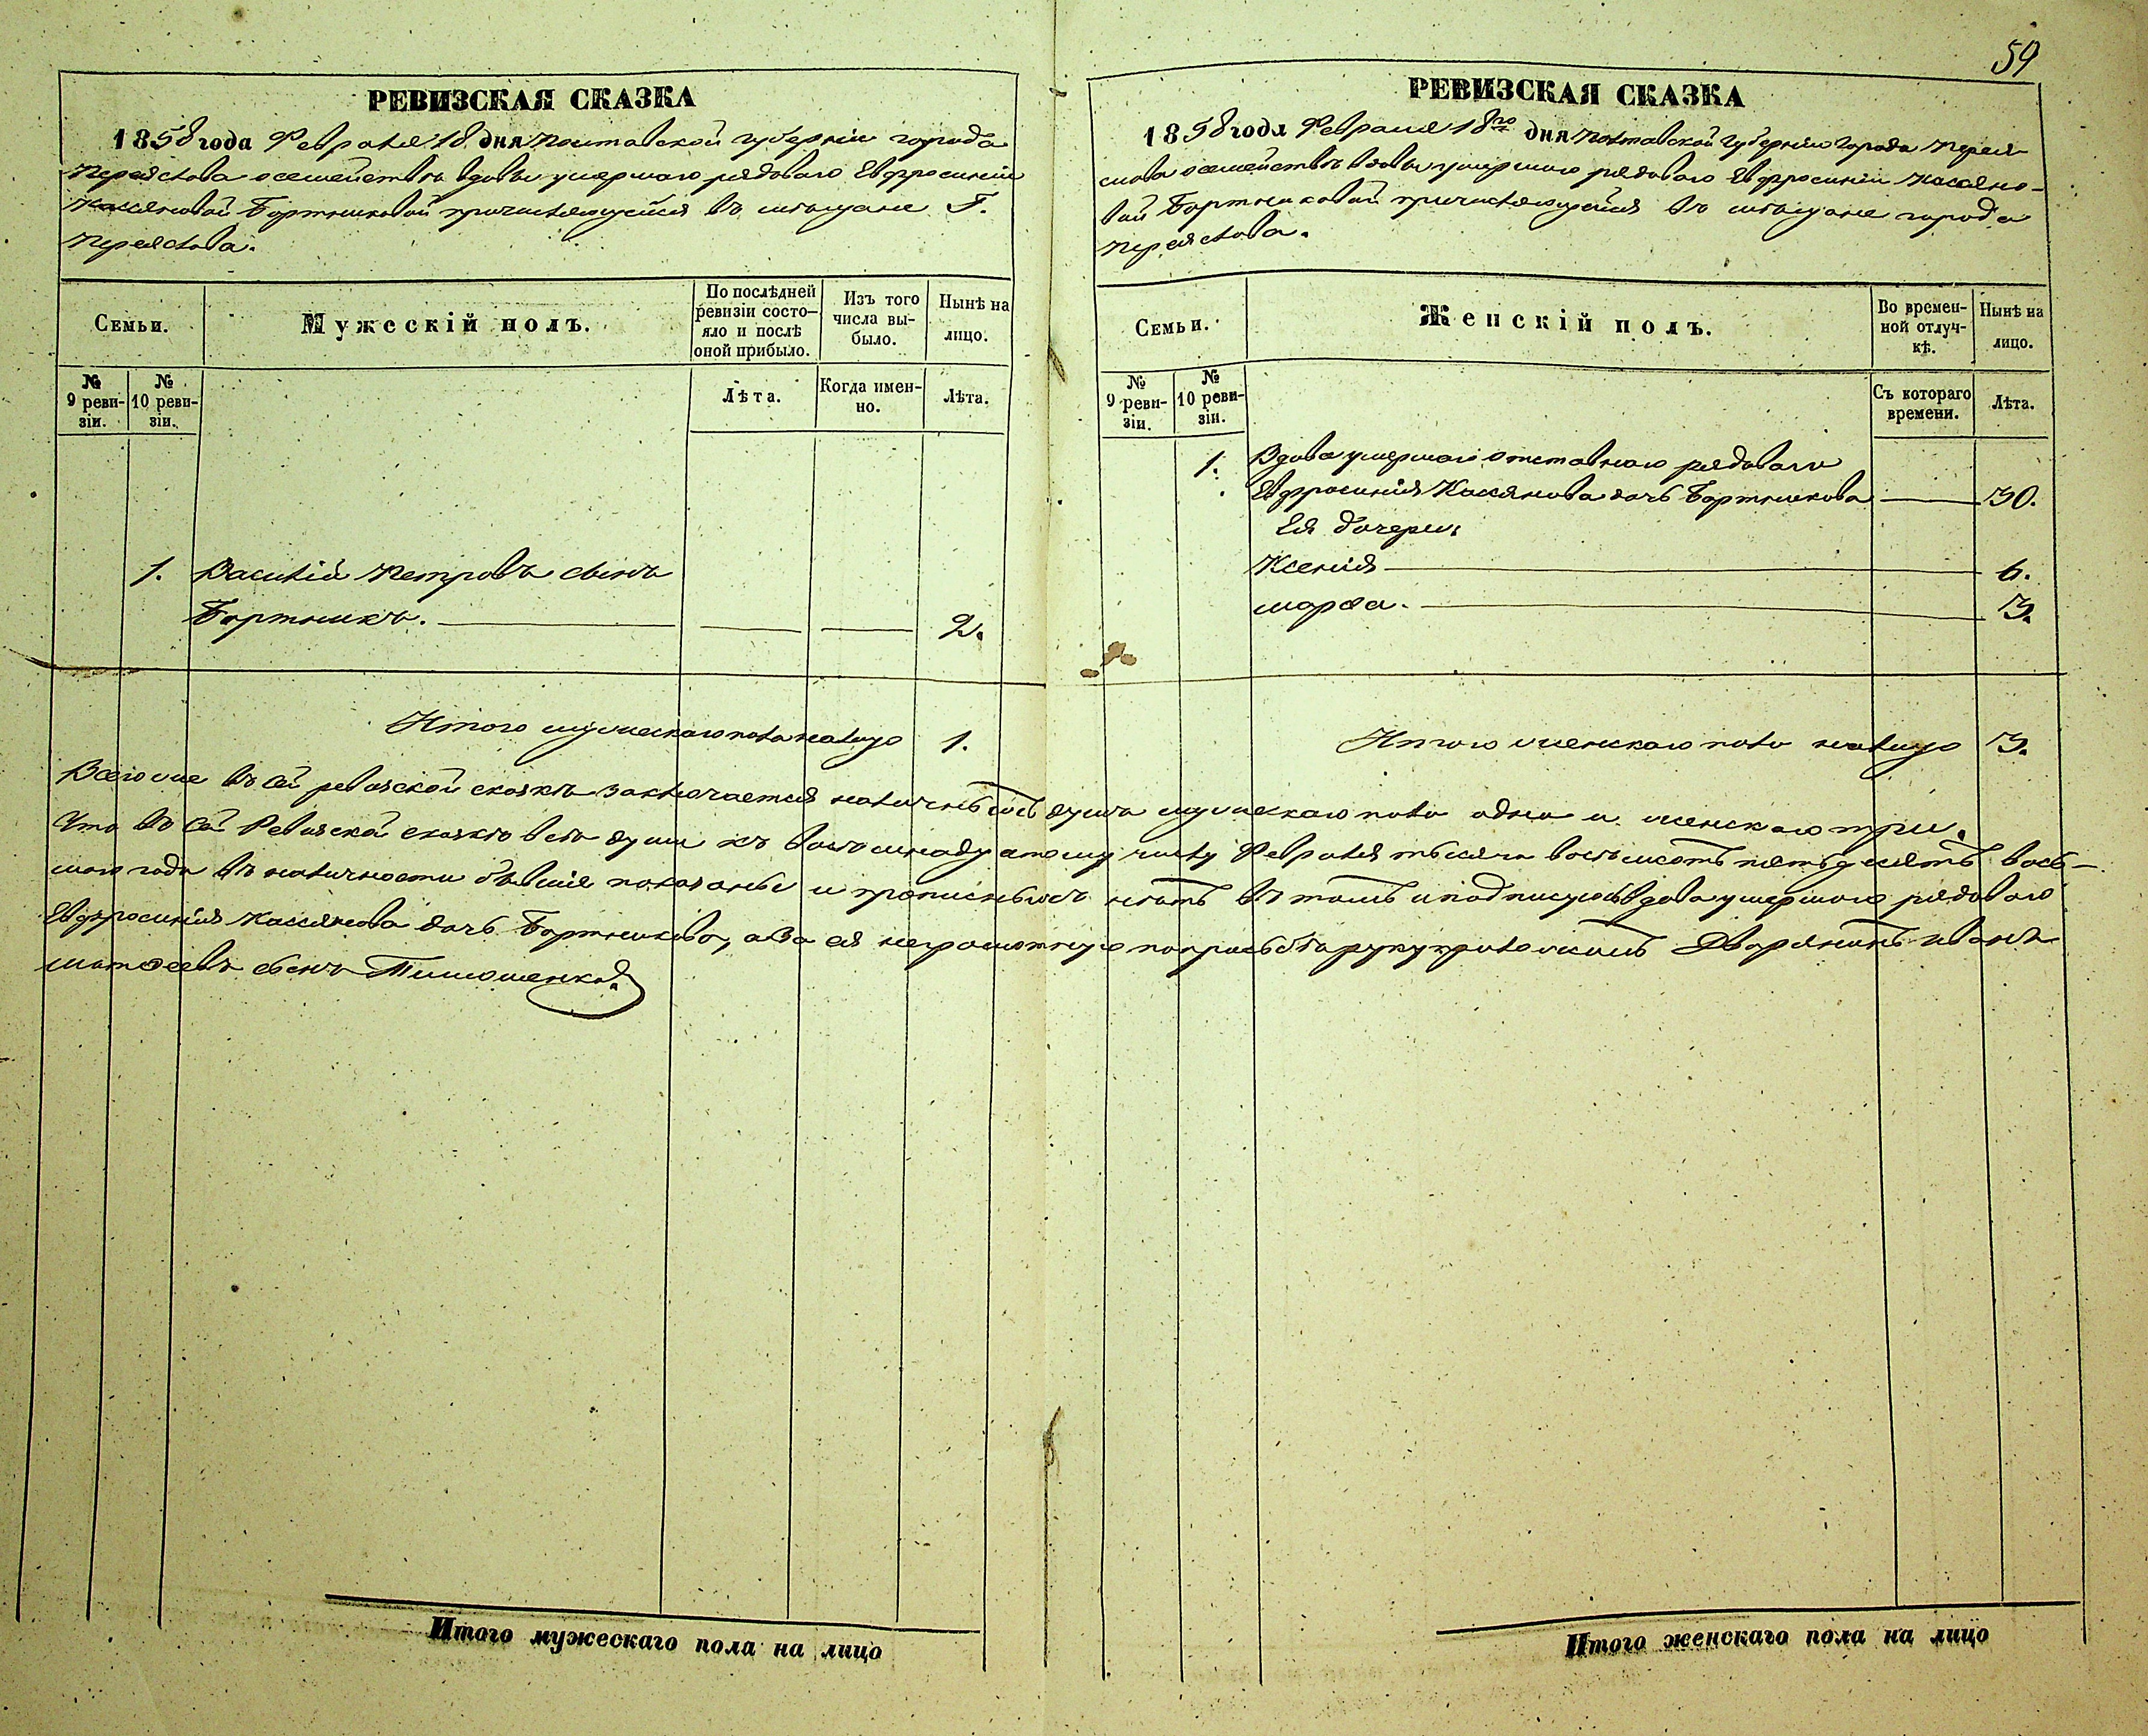 59
РЕВИЗСКАЯ СКАЗКА
1858 года Февраля 18 дня Полтавской губерніи города
Переяслова о семействѣ вдовы умершаго рядоваго Евфросиніи
Касьяновой Бортниковой причисляющейся въ мѣщане Г.
Переяслова.
Семьи.
Мужескій полъ.
По послѣдней ревизіи состояло и послѣ оной прибыло.
Изъ того числа выбыло.
Нынѣ на лицо.
№ 9 ревизіи.
№ 10 ревизіи.
Лѣта.
Когда именно.
Лѣта.
1. Василій Петровъ сынъ
Бортникъ. 2.
Итого мужескаго пола налицо 1.
РЕВИЗСКАЯ СКАЗКА
1858 года Февраля 18го дня Полтавской Губерніи Города Перея-
слова о семействѣ вдовы умершаго рядоваго Евфросиніи Касьяно-
вой Бортниковой причисляющейся въ мѣщане города
Переяслова.
Семьи.
Женскій полъ.
Во временной отлучкѣ.
Нынѣ на лицо.
№ 9 ревизіи.
№ 10 ревизіи.
Съ котораго времени.
Лѣта.
1. Вдова умершаго отставнаго рядоваго
Евфросинія Касьянова дочь Бортникова 30.
Ея дочери:
Ксенія 6.
марфа. 3.
Итого женскаго пола налицо 3.
Всего же въ сей ревизской сказкѣ заключается наличныхъ душъ мужескаго пола одна и женскаго три.
Что въ сей Ревизской сказкѣ всѣ души къ восьмнадцатому числу Февраля тысяча восемсотъ пятьдесятъ вось-
маго года въ наличности бывшіе показаны и прописныхъ нѣтъ въ томъ и подписуюсь вдова умершаго рядоваго
Евфросинія Касьянова дочь Бортникова, а за ея неграмотную попросьбѣ руку приложилъ Дворянинъ иванъ
матфеевъ сынъ Тимошенко.
Итого мужескаго пола на лицо
Итого женскаго пола на лицо